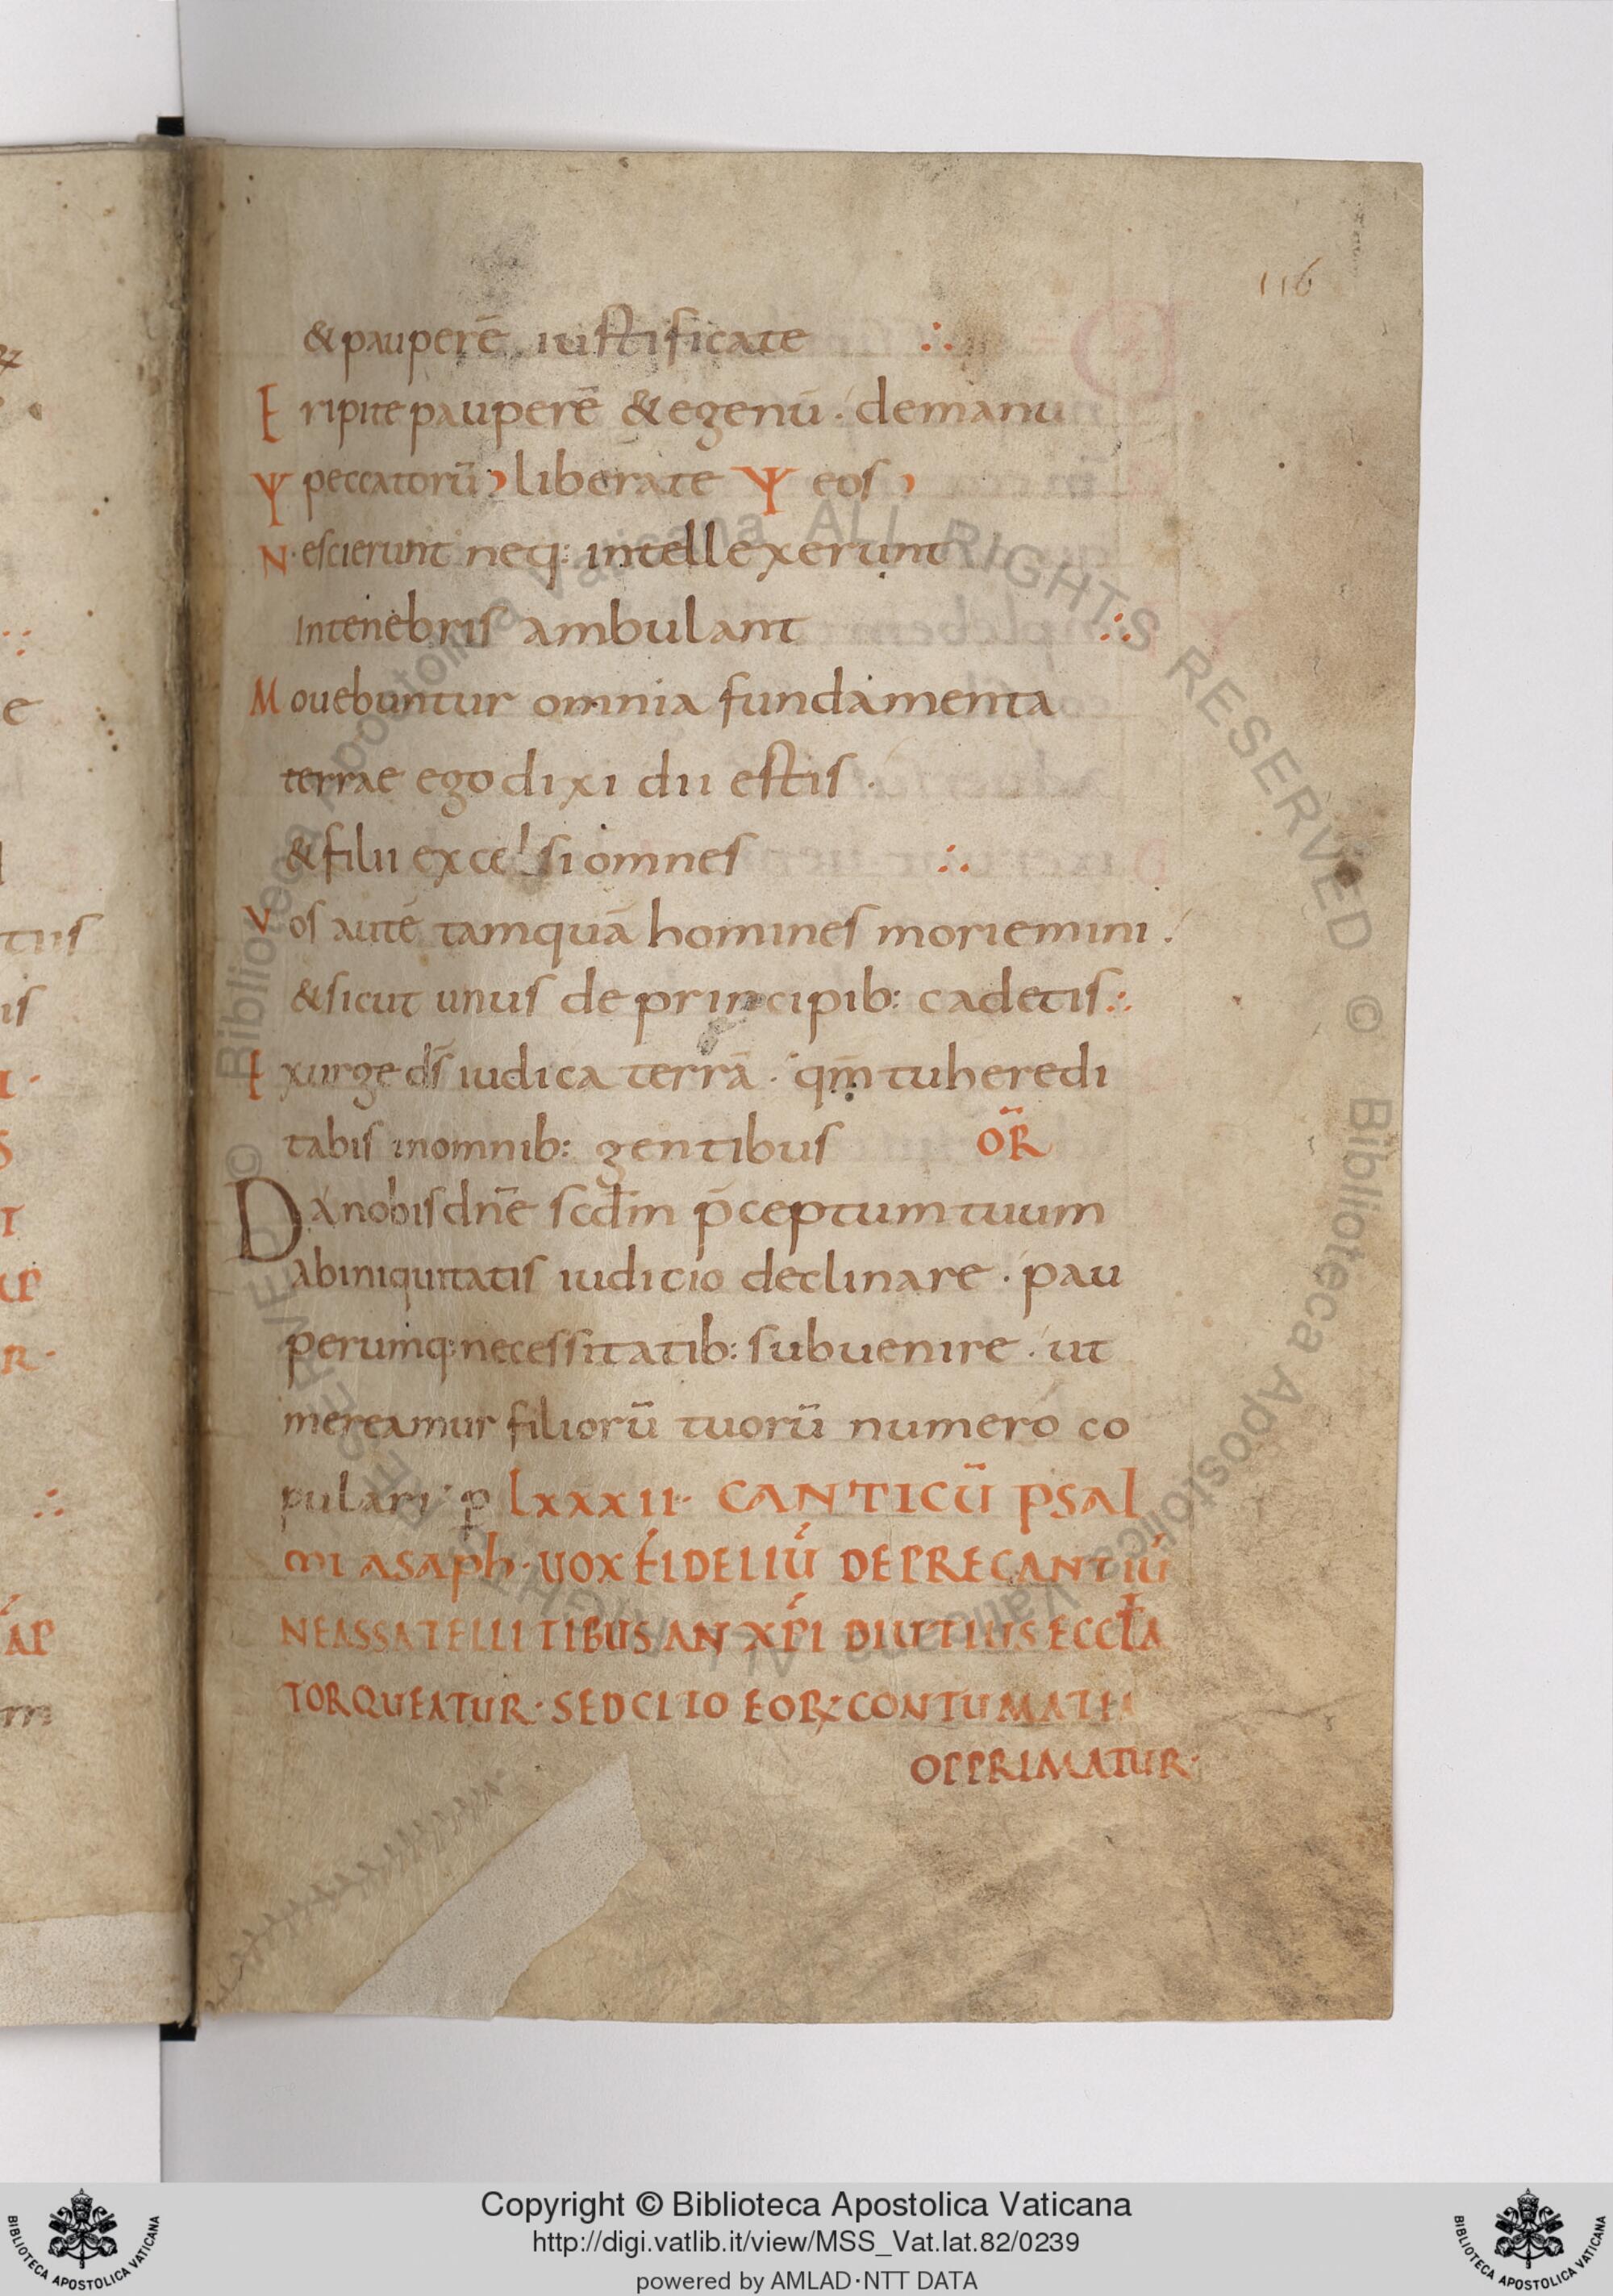 116
&pauperē iustificate ∴
E ripite pauperē & egenū · demanu
Ψ peccatorū liberate Ψ eos
N escierunt neq: intellexerunt
intenebris ambulant ∴
M ouebuntur omnia fundamenta
terrae ego dixi dii estis ·
& filii excelsi omnes ∴
V os autē tamquā homines moriemini .
& sicut unus de principib: cadetis ∴
E xurge d̄s iudica terrā · qm̄ tu heredi
tabis inomnib: gentibus OR̄
Da nobis dn̄e scdm̄ p̄ceptum tuum
ab iniquitatis iudicio declinare · pau
perumq: necessitatib: subuenire · ut
mereamur filiorū tuorū numero co
pulari · p lxxxii · CANTICŪ psal
mi asaph · UOX FIDELIŪ DEPRECANTIŪ
NE A SSATELLITIBUS AN XP̄I DIUTIUS ECCL̄A
TORQUEATUR · SED CITO EORꝜ CONTUMATIA
OPPRIMATUR ·
© Biblioteca Apostolica Vaticana ALL RIGHTS RESERVED © Biblioteca Apostolica Vaticana ALL RIGHTS RESERVED
Copyright © Biblioteca Apostolica Vaticana
http://digi.vatlib.it/view/MSS_Vat.lat.82/0239
powered by AMLAD·NTT DATA
BIBLIOTECA APOSTOLICA VATICANA
BIBLIOTECA APOSTOLICA VATICANA